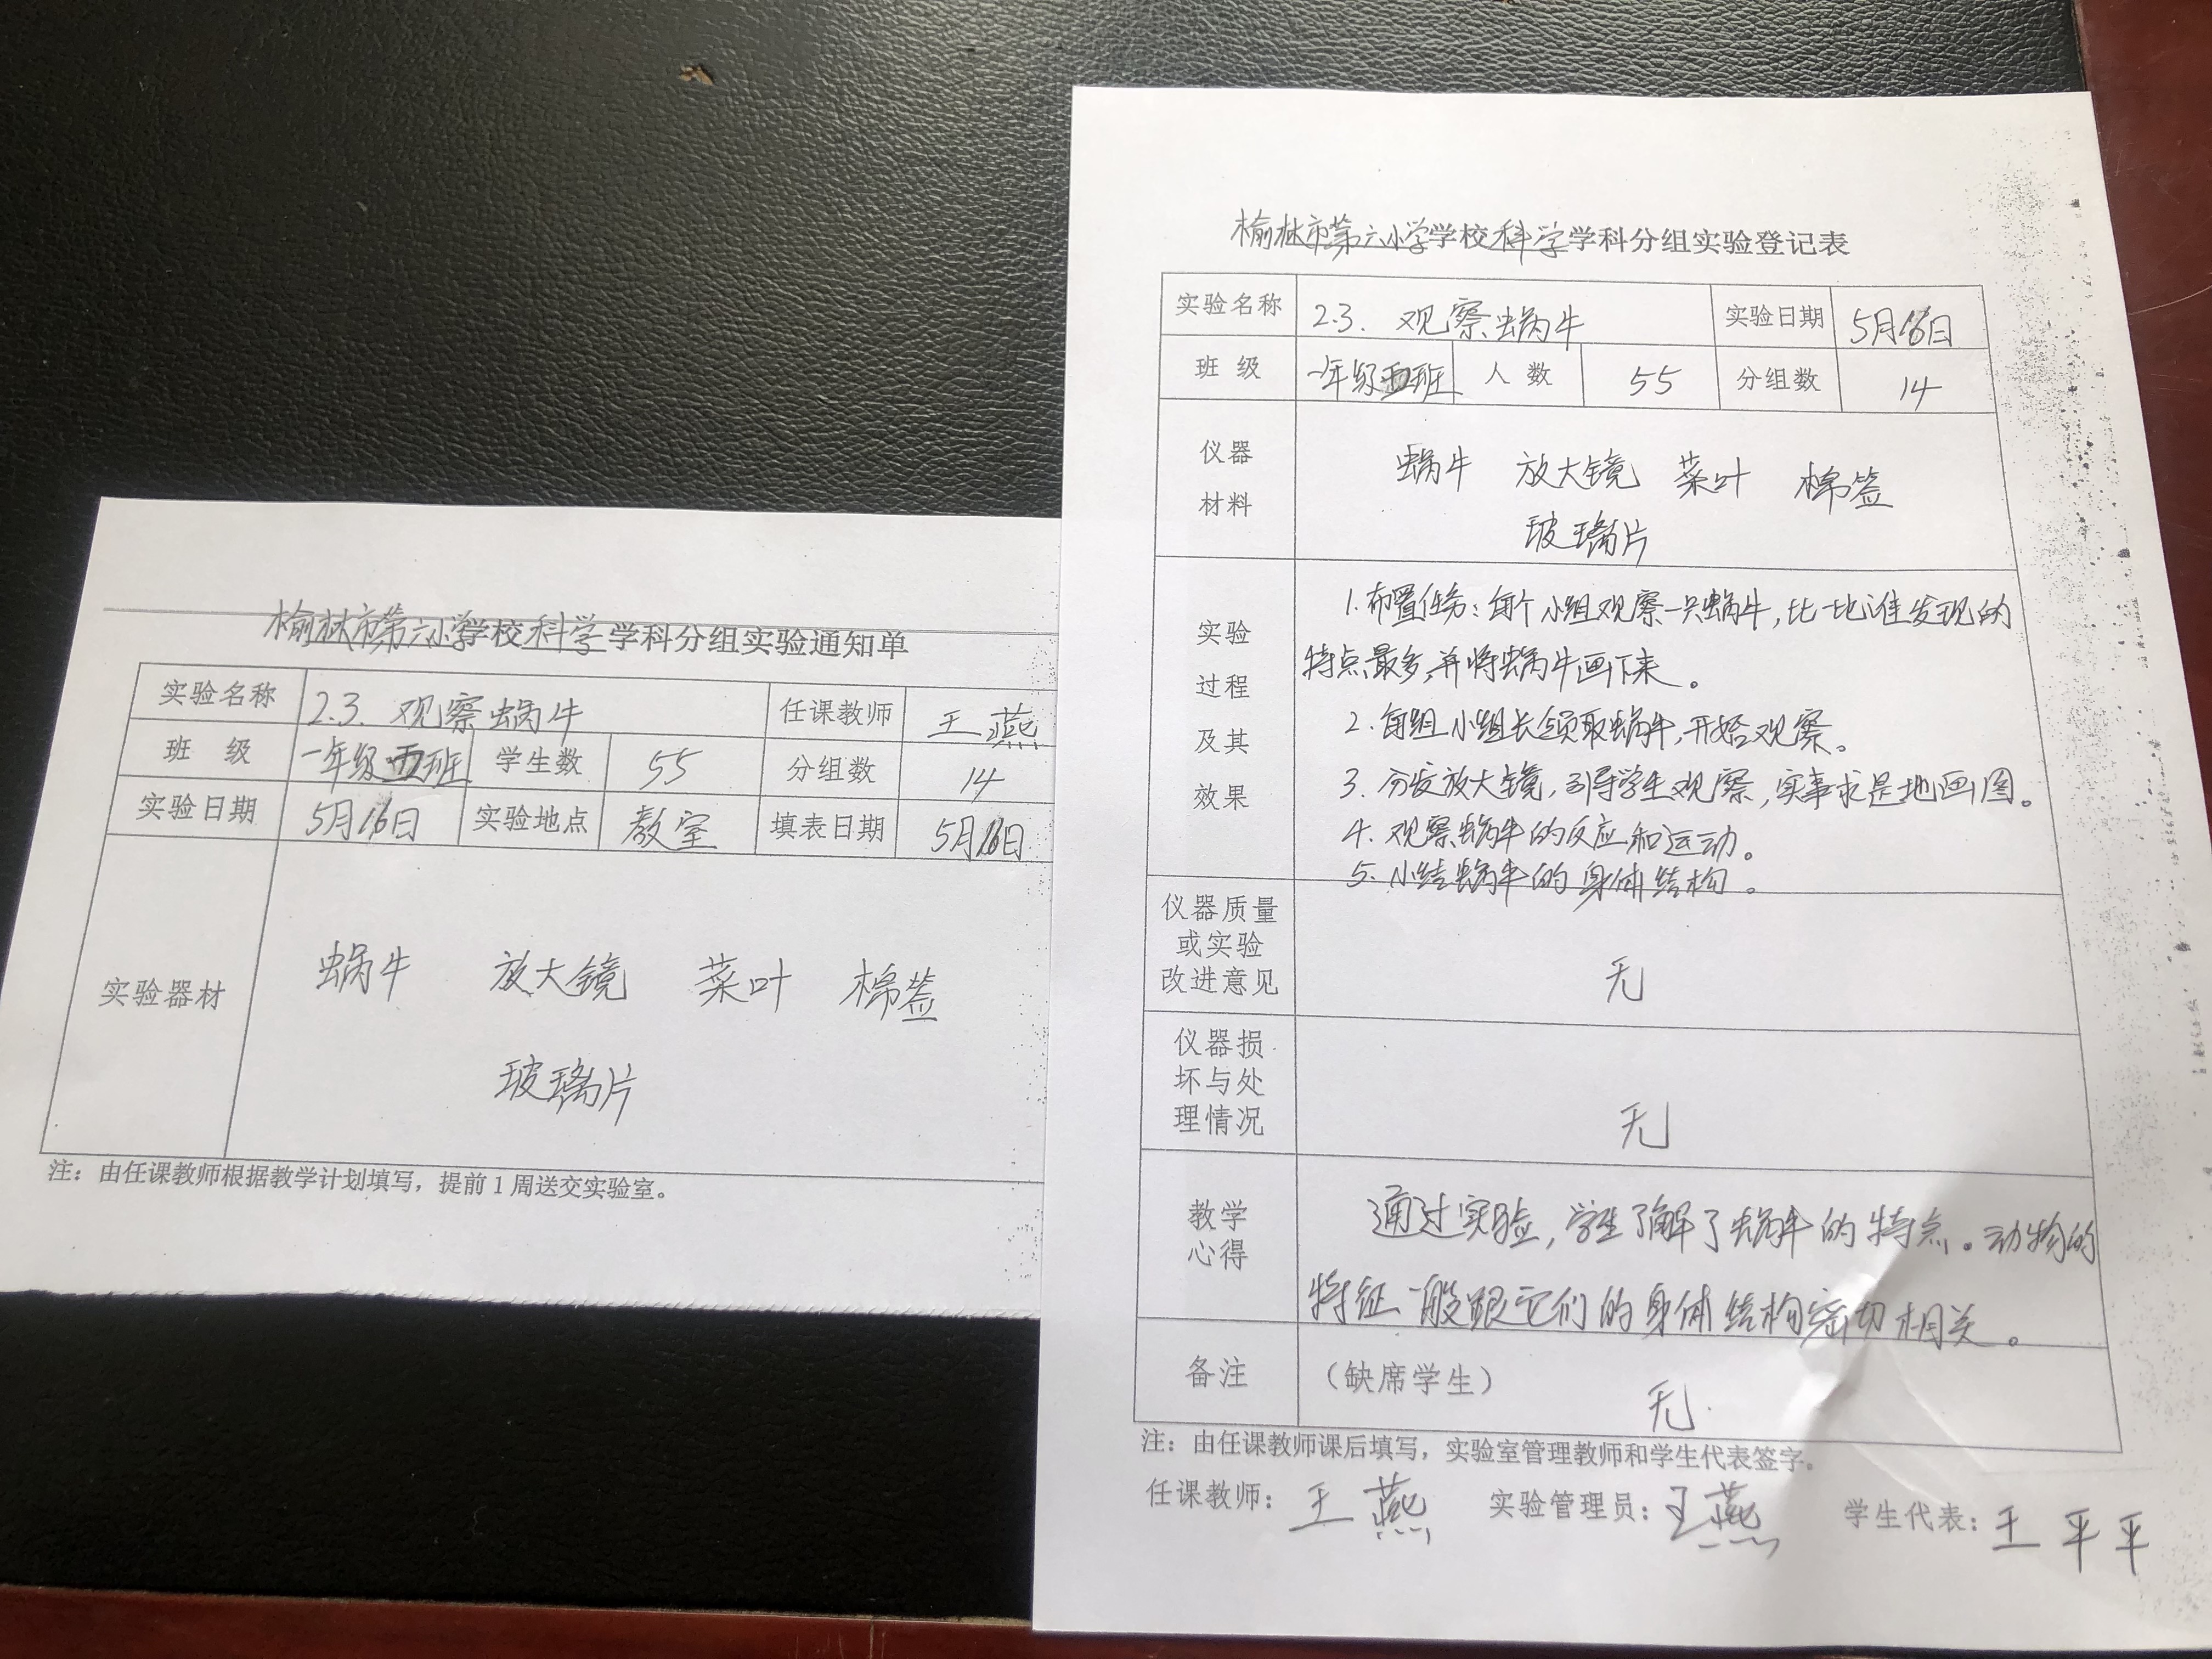 榆林市第六小学学校科学学科分组实验通知单
实验名称 2.3. 观察蜗牛 任课教师 王燕
班级 一年级五班 学生数 55 分组数 14
实验日期 5月16日 实验地点 教室 填表日期 5月日
实验器材 蜗牛 放大镜 菜叶 棉签
玻璃片
注：由任课教师根据教学计划填写，提前1周送交实验室。
榆林市第六小学学校科学学科分组实验登记表
实验名称 2.3. 观察蜗牛 实验日期 5月16日
班级 一年级五班 人数 55 分组数 14
仪器
材料
蜗牛 放大镜 菜叶 棉签
玻璃片
实验
过程
及其
效果
1.布置任务：每个小组观察一只蜗牛，比一比谁发现的
特点最多，并将蜗牛画下来。
2.每组小组长领取蜗牛，开始观察。
3.分发放大镜，引导学生观察，实事求是地画图。
4.观察蜗牛的反应和运动。
5.小结蜗牛的身体结构。
仪器质量
或实验
改进意见
无
仪器损
坏与处
理情况
无
教学
心得
通过实验，学生了解了蜗牛的特点。动物的
特征一般跟它们的身体结构密切相关。
备注 （缺席学生）
无.
注：由任课教师课后填写，实验室管理教师和学生代表签字。
任课教师：王燕 实验管理员：王燕 学生代表：王平平